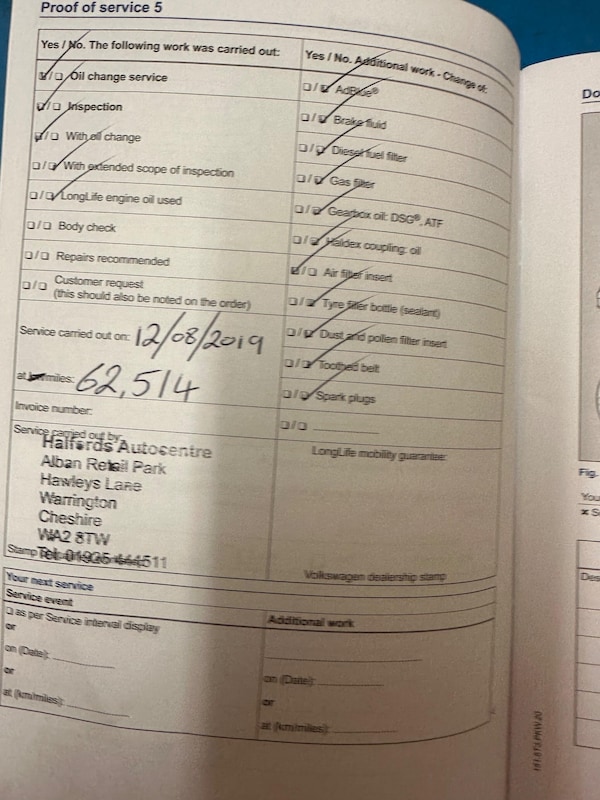 Proof of service 5
Yes / No. The following work was carried out:
☑/☐ Oil change service
☑/☐ Inspection
☑/☐ With oil change
☐/☑ With extended scope of inspection
☐/☑ LongLife engine oil used
☐/☐ Body check
☐/☐ Repairs recommended
☐/☐ Customer request
(this should also be noted on the order)
Service carried out on: 12/08/2019
at km/miles: 62,514
Invoice number:
Service carried out by:
Halfords Autocentre
Alban Retail Park
Hawleys Lane
Warrington
Cheshire
WA2 8TW
Stamp
Tel: 01925 444511
Yes / No. Additional work - Change of:
☐/☑ AdBlue®
☐/☑ Brake fluid
☐/☑ Diesel fuel filter
☐/☑ Gas filter
☐/☑ Gearbox oil: DSG®, ATF
☐/☑ Haldex coupling: oil
☑/☐ Air filter insert
☐/☑ Tyre filler bottle (sealant)
☐/☑ Dust and pollen filter insert
☐/☑ Toothed belt
☐/☑ Spark plugs
☐/☐
LongLife mobility guarantee:
Volkswagen dealership stamp
Your next service
Service event
☐ as per Service interval display
or
on (Date):
or
at (km/miles):
Additional work
on (Date):
or
at (km/miles):
Do
Fig.
You
Des